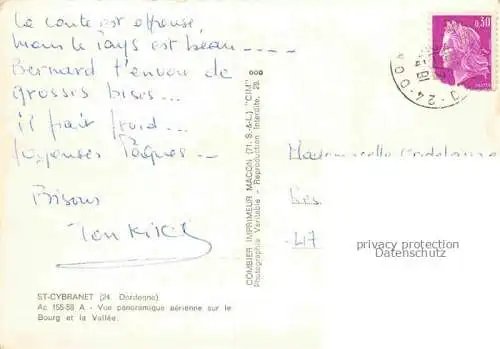 La route est affreuse,
mais le Pays est beau - - - -
Bernard t'envoie de
grosses bises...
il fait froid...
Joyeuses Pâques - -
Bisous
Ton Kiki
ST-CYBRANET (24. Dordogne)
Ac 155-58 A - Vue panoramique aérienne sur le
Bourg et la Vallée.
COMBIER IMPRIMEUR MACON (71. S.-&-L.) "CIM"
Photographie Véritable - Reproduction Interdite. 29.
0,30
Mademoiselle
Res
47
privacy protection
Datenschutz